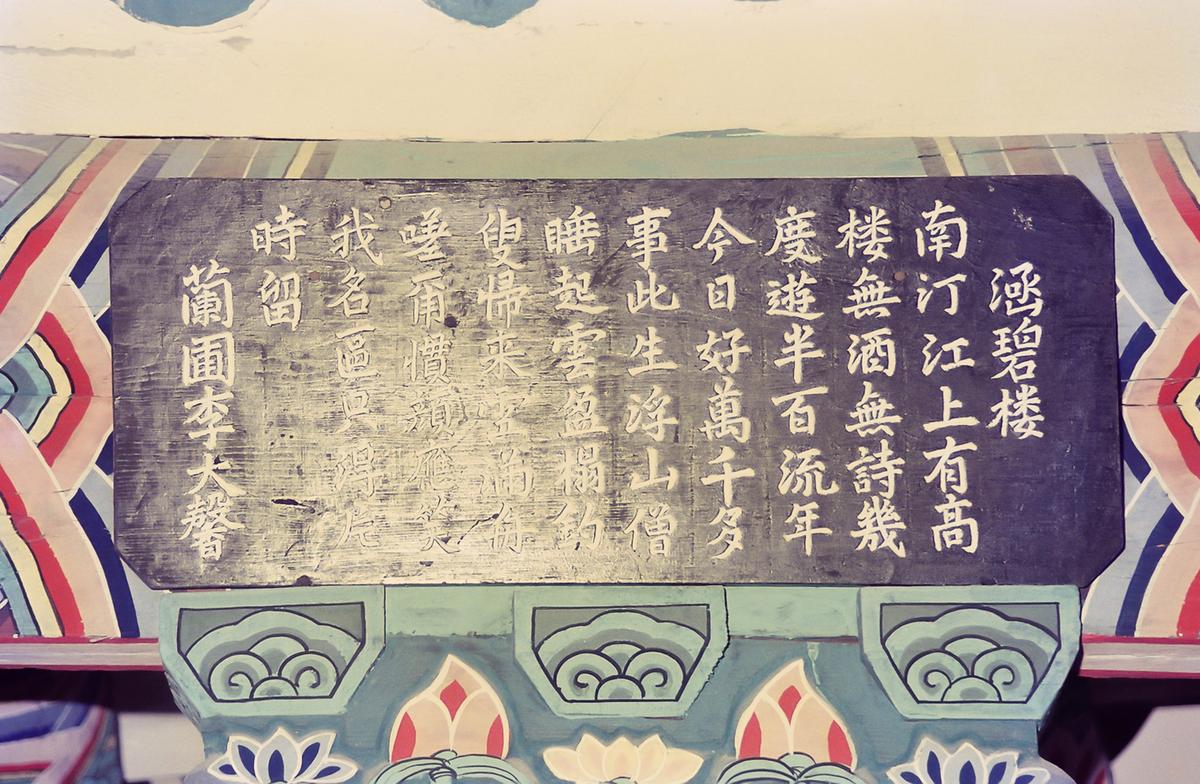 涵碧楼
南汀江上有高
楼無酒無詩幾
度遊半百流年
今日好萬千多
事此生浮山僧
睡起雲盈榻釣
叟帰来滿舟
嗟爾慣顔應笑
我名區只得片
時留
蘭圃李大馨